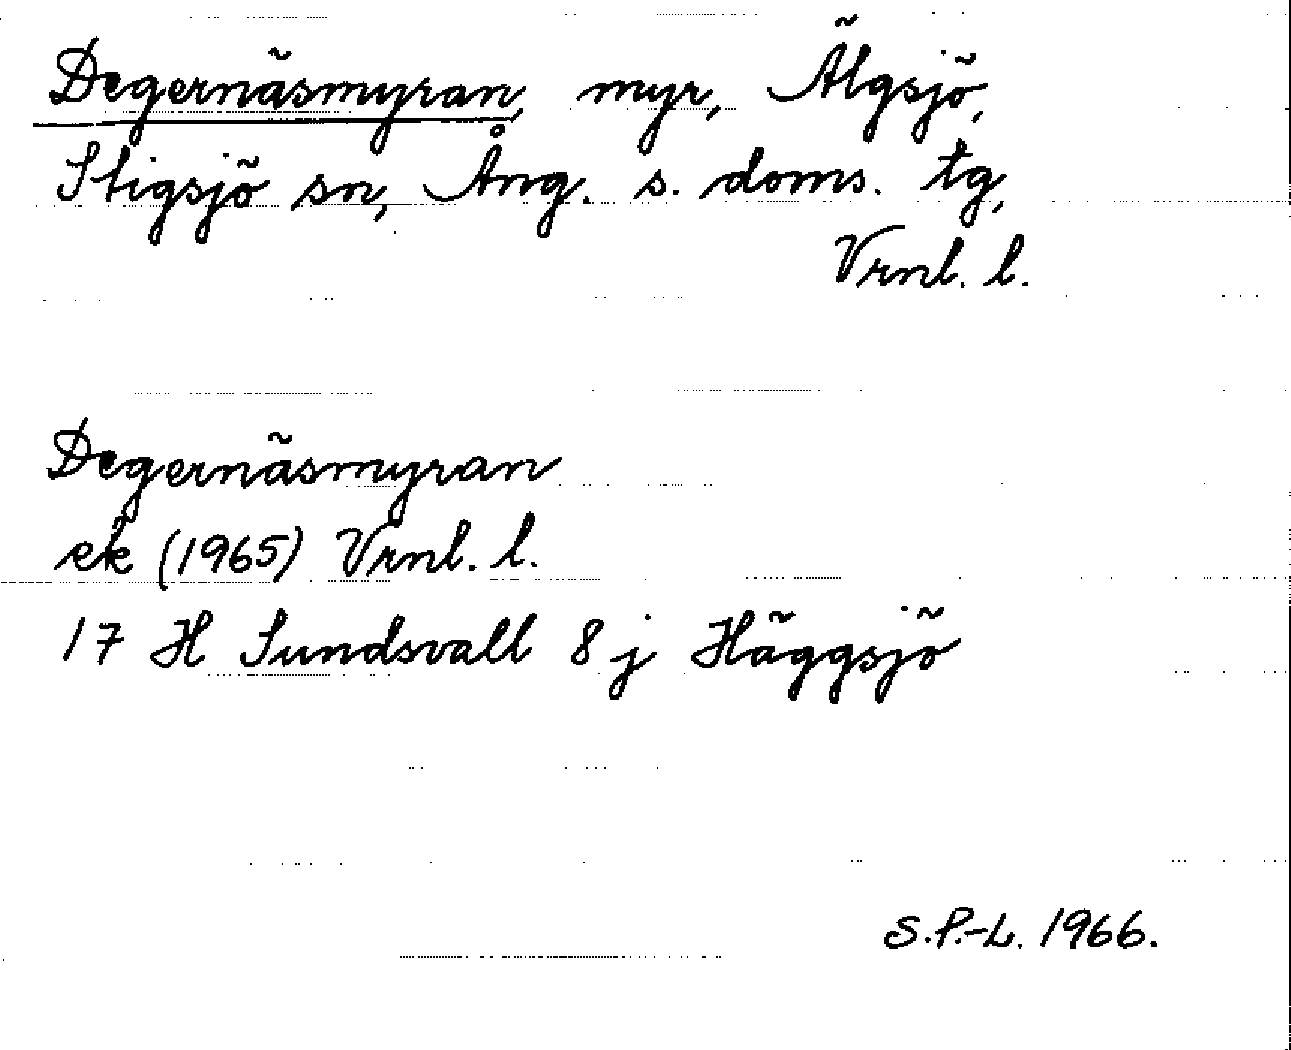 Degernäsmyran, myr, Älgsjö,
Stigsjö sn, Ång. s. doms. tg,
Vrnl. l.
Degernäsmyran
ek (1965) Vrnl. l.
17 H Sundsvall 8 j Häggsjö
S.P.-L. 1966.